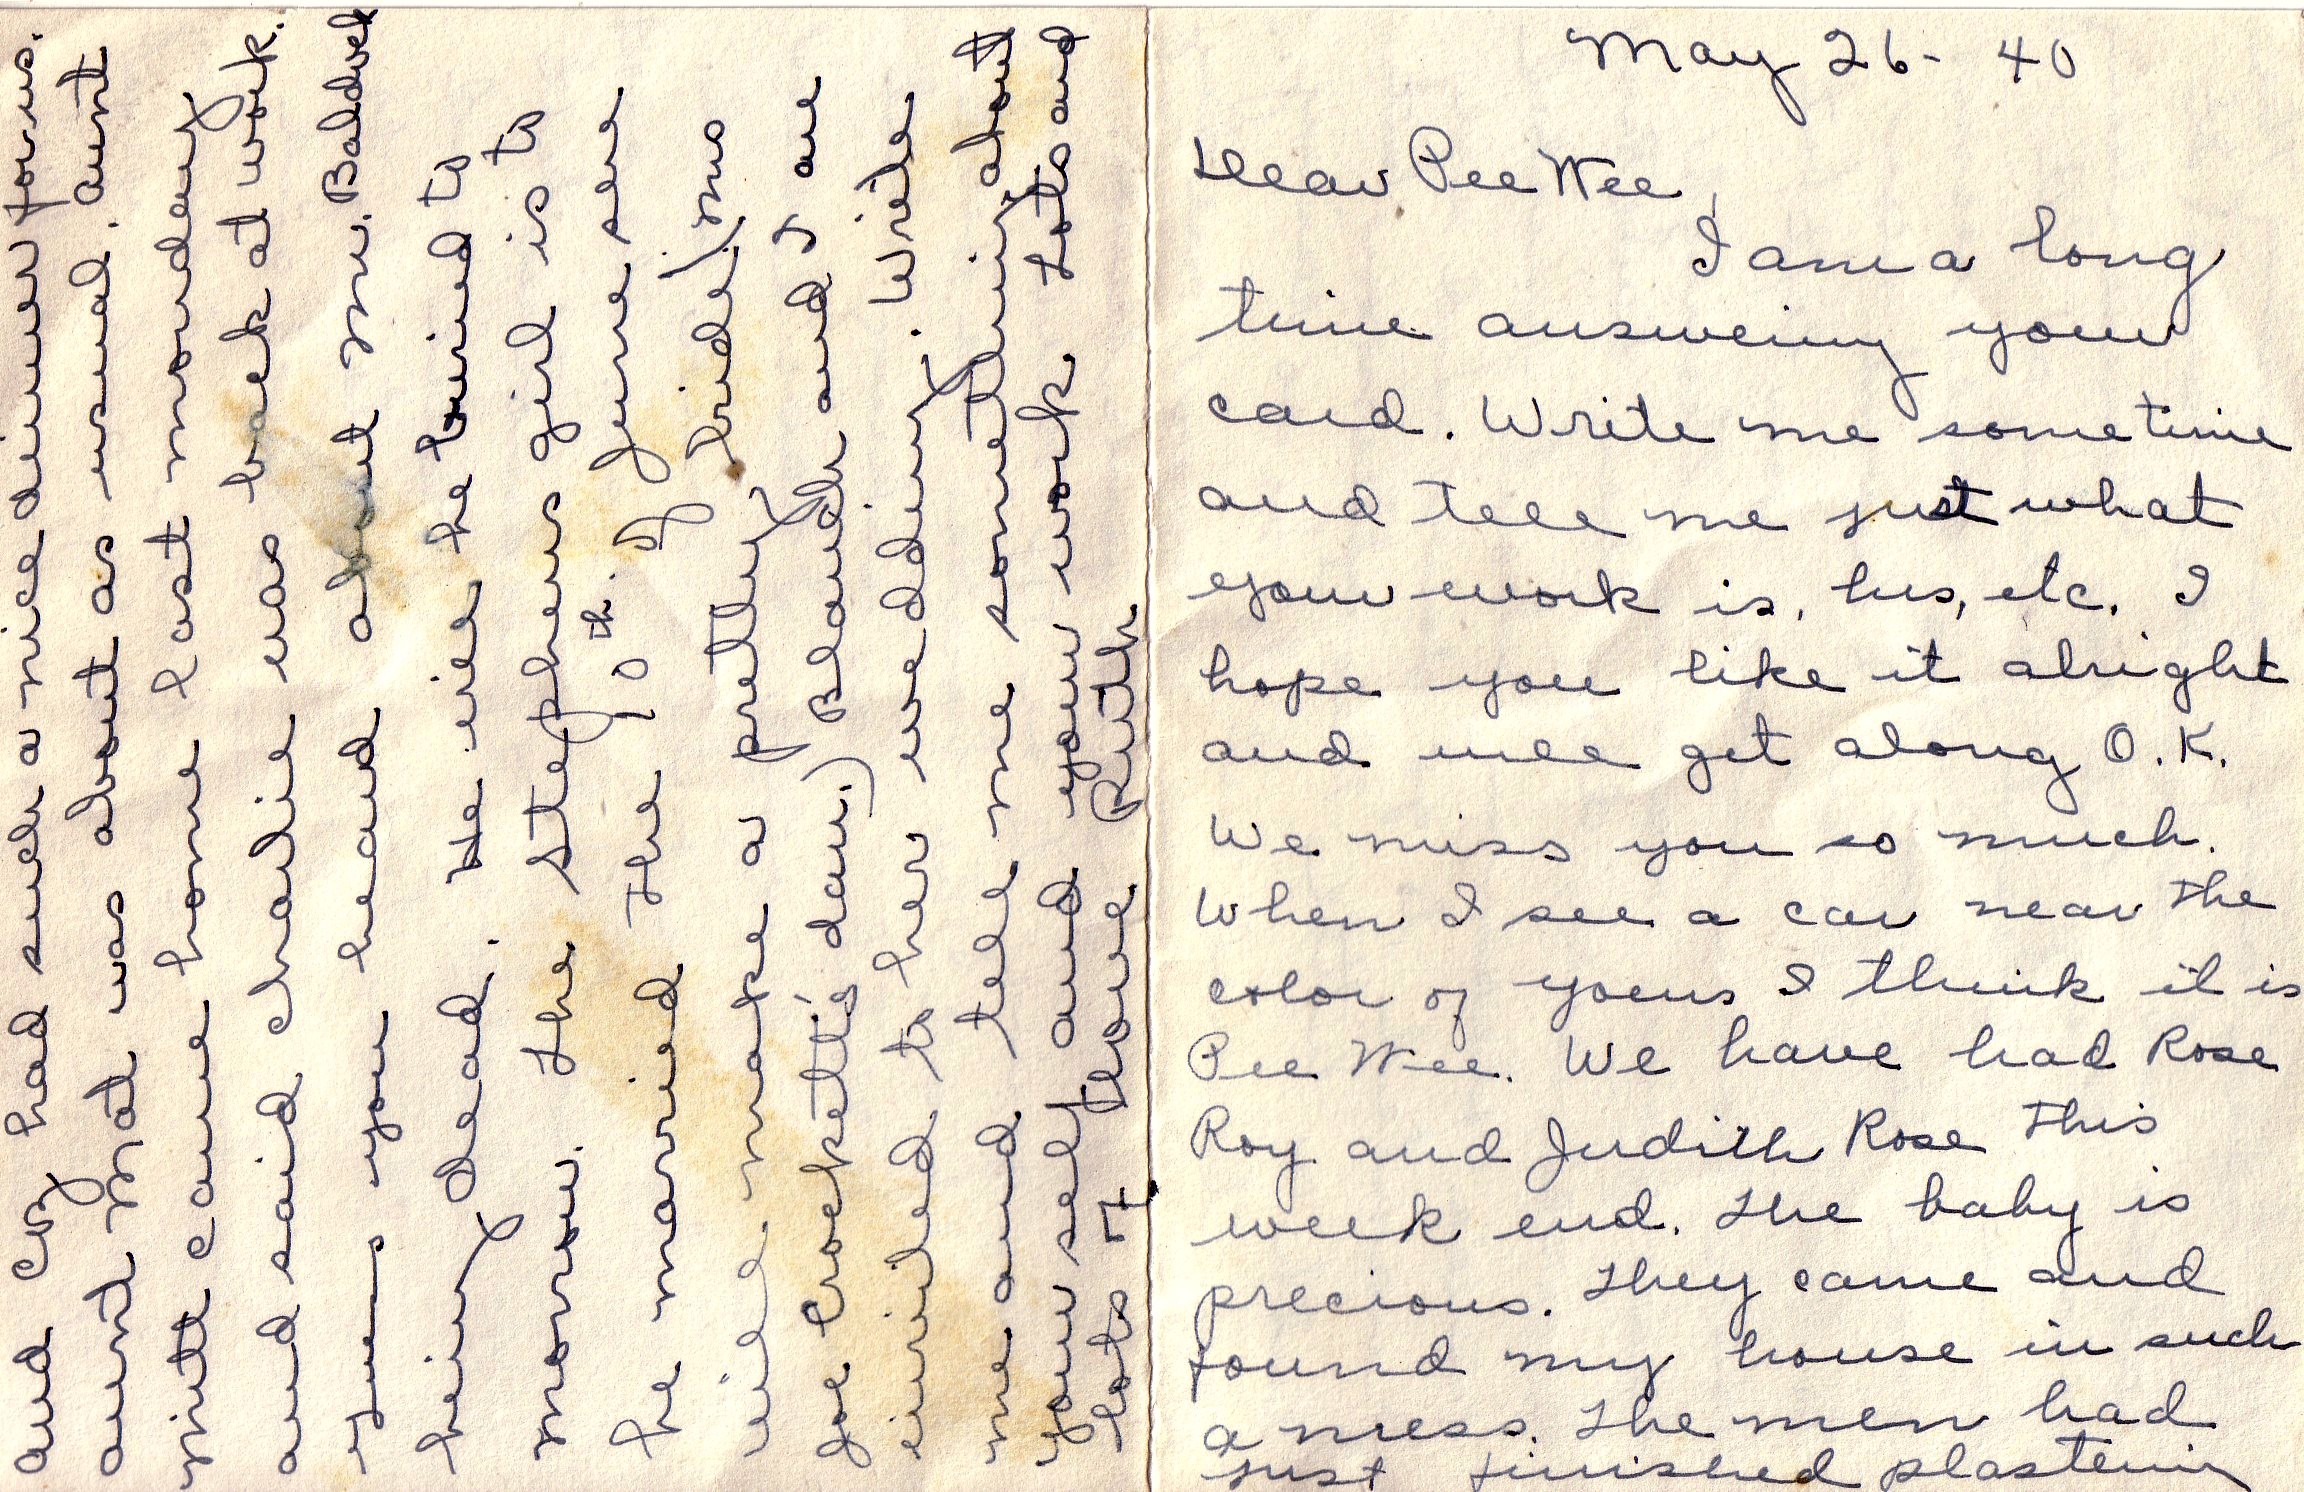 May 26 - 40
Dear Pee Wee,
I am a long
time answering your
card. Write me sometime
and tell me just what
your work is, hrs, etc. I
hope you like it alright
and will get along O.K.
We miss you so much.
When I see a car near the
color of yours I think it is
Pee Wee. We have had Rose
Roy and Judith Rose this
week end. The baby is
precious. They came and
found my house in such
a mess. The men had
just finished plastering
and had such a nice dinner for us.
aunt Mat was about as usual. Aunt
mitt came home last monday
and said charlie was back at work.
I guess you heard about Mr.
being dead. He will be buried to
morrow. The Stephens girl is to
be married the 10th. of June she
will make a pretty bride, (mrs
Joe Crockett's dau.) Blanch and I are
invited to her wedding. Write
me and tell me something about
your self and your work. Lots and
lots of love Ruth